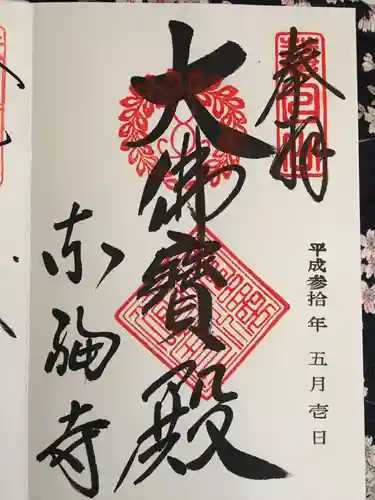 奉拝
平成参拾年 五月壱日
大佛寳殿
东福寺